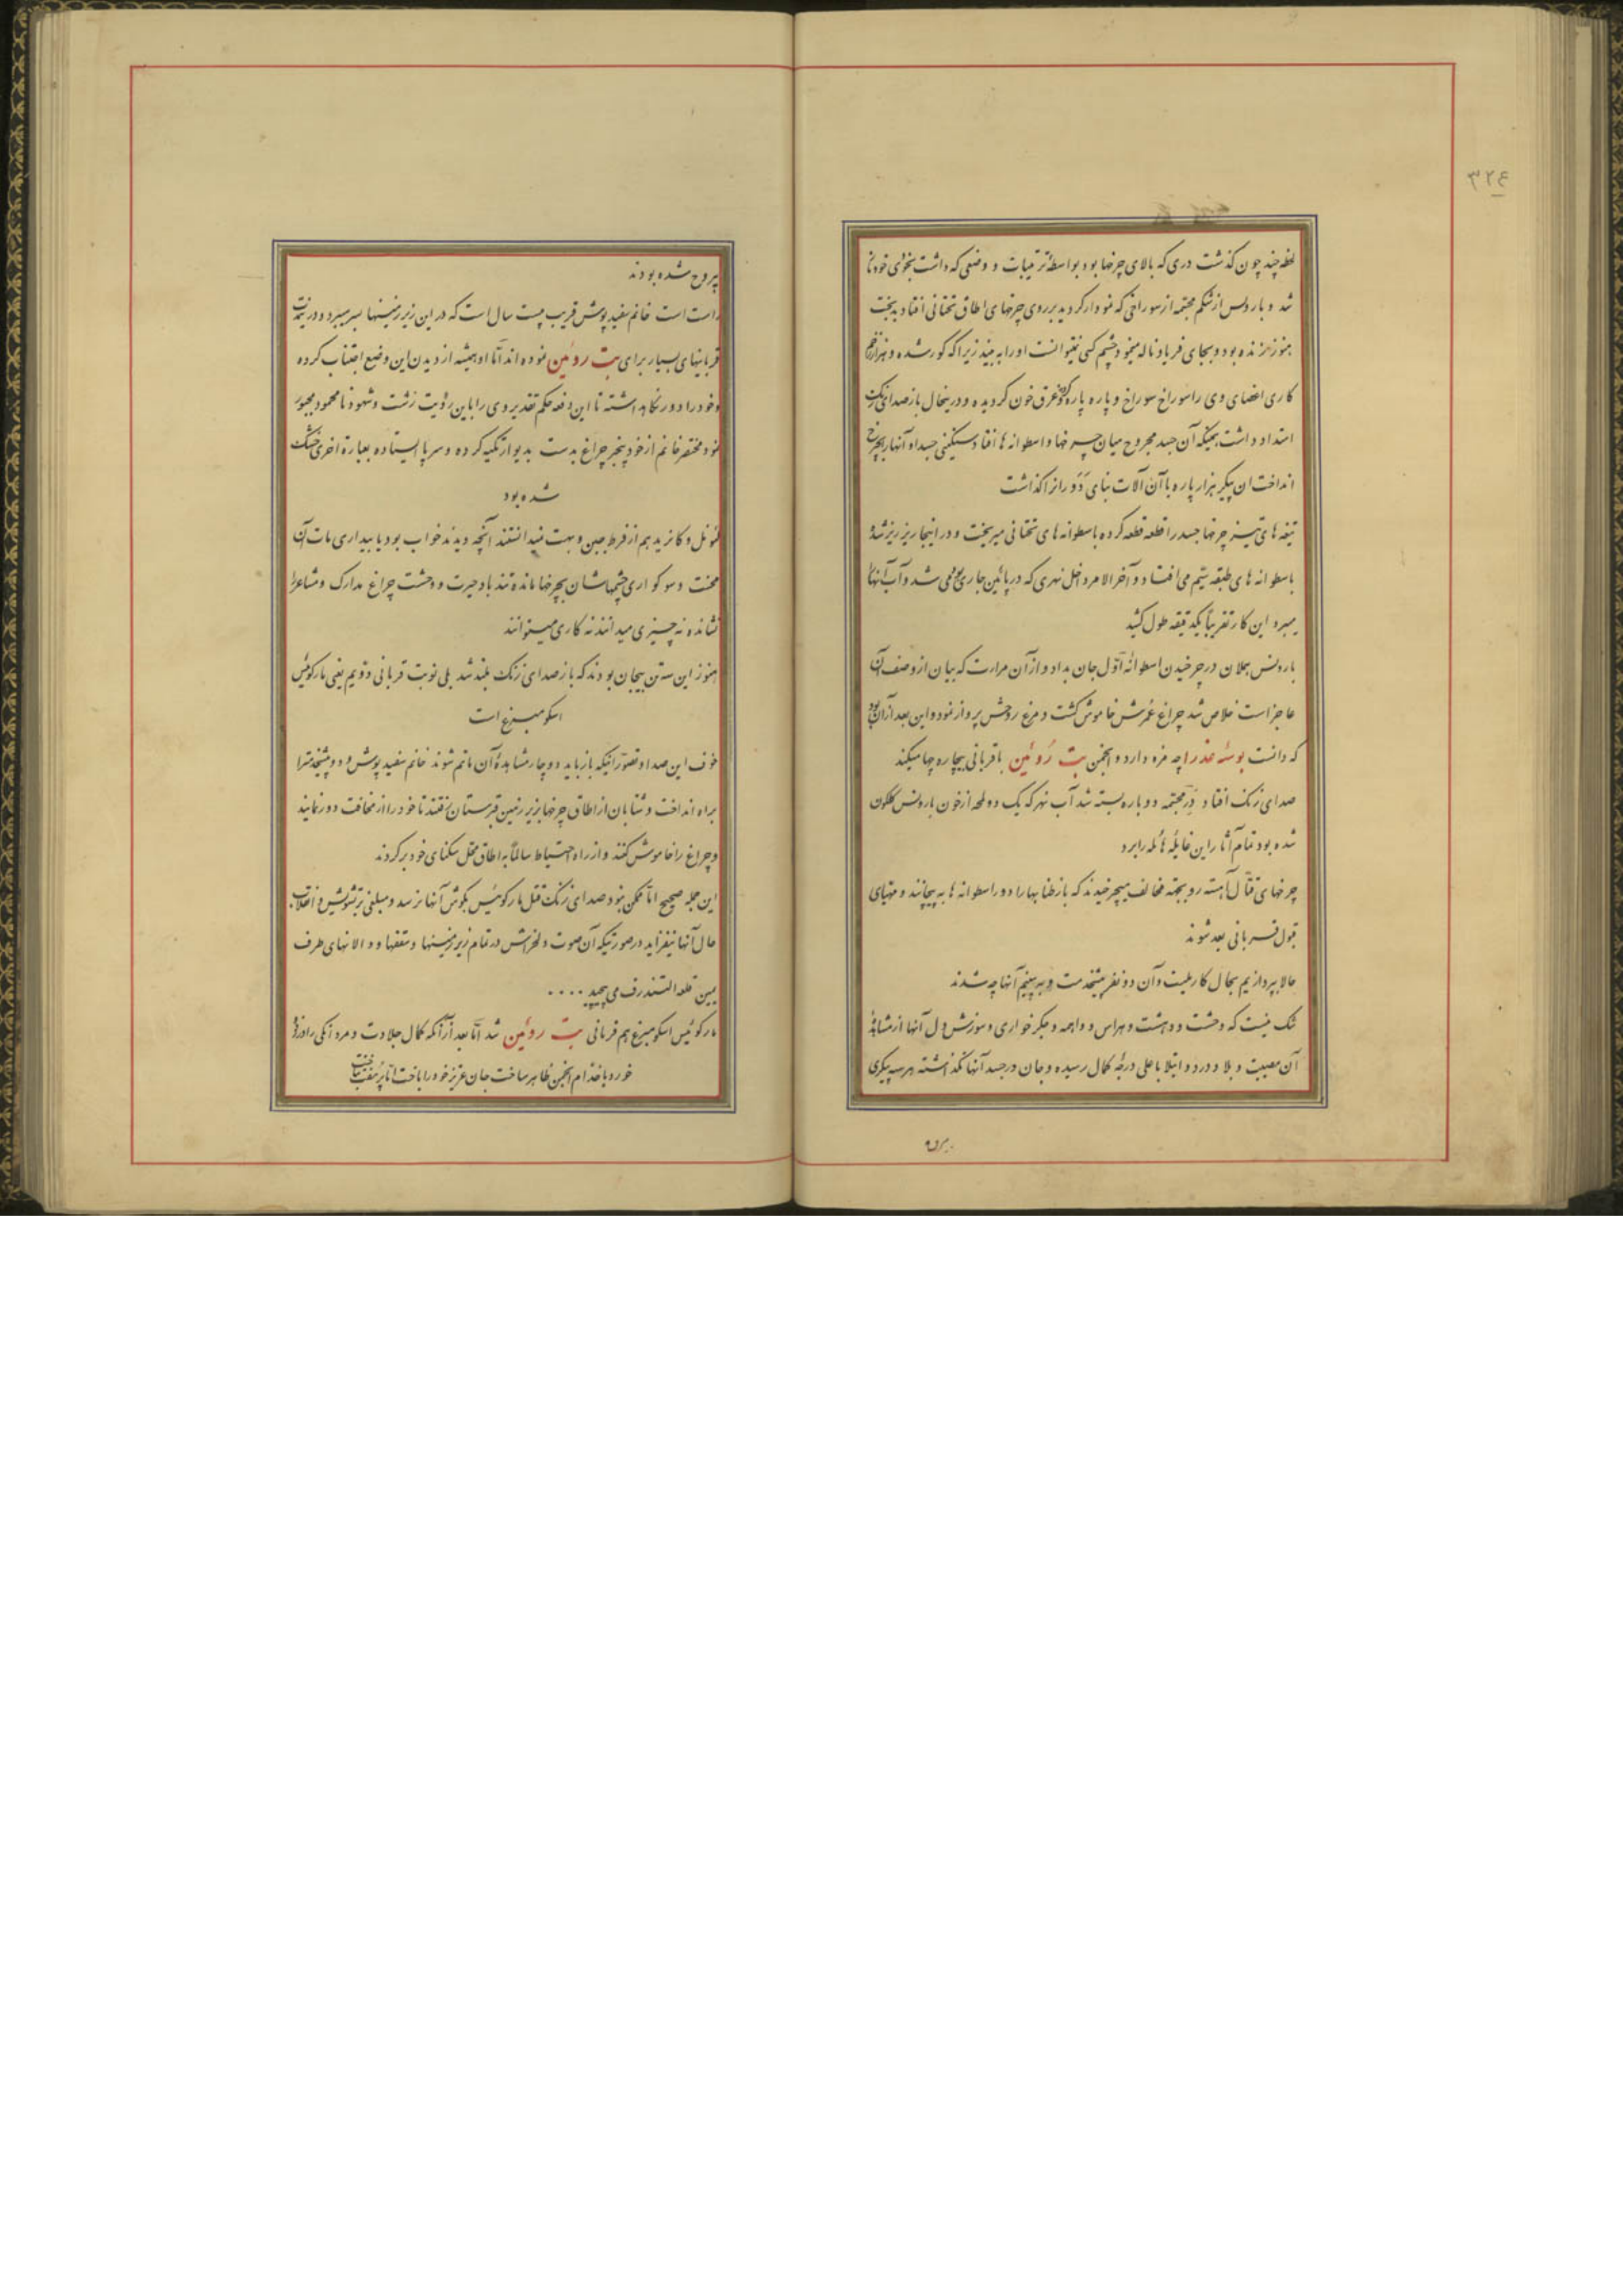 ۳۲٤
لحظه چند چون گذشت دری که بالای چرخها بود بواسطهٔ ترتیبات و وضعی که داشت بخودی خود وا
شد و بارونس از شکم مجسمه از سوراخی که نمودار گردید بر روی چرخهای اطاق تحتانی افتاد بدبخت
هنوز زنده بود و بجای فریاد ناله مینمود چشم کسی نمیتوانست او را به بیند زیرا که کور شده و هزار زخم
کاری اعضای وی را سوراخ سوراخ و پاره پاره کرده و غرق خون گردیده و در ینحال باز صدای زنگ
امتداد داشت همینکه آن جسد مجروح میان چرخها و اسطوانه ها افتاد سنگینی جسد او آنها را بچرخ
انداخت ان پیکر هزار پاره با آن آلات بنای دَوَران را گذاشت
تیغه های تیز چرخها جسد را قطعه قطعه کرده باسطوانه های تحتانی میریخت و در اینجا ریز ریز شده
باسطوانه های طبقه سیّم می افتاد و آخر الامر داخل نهری که در پائین جاری بود می شد و آب آنها را
میبرد این کار تقریباً یکدقیقه طول کشید
بارونس هملان در چرخیدن اسطوانهٔ اوّل جان بداد و از آن مرارت که بیان از وصف آن
عاجز است خلاص شد چراغ عُمرش خاموش گشت و مرغ روحش پرواز نمود و این بعد از آن بود
که دانست بوسهٔ عذرا چه مزه دارد و انجمن بت رُوئین با قربانی بیچاره چها میکند
صدای زنگ افتاد دَرِ مجسمه دوباره بسته شد آب نهر که یک دو لمحه از خون بارونس گلگون
شده بود تمام آثار این غایلهٔ هائله را برد
چرخهای قتّال آهسته رو بجهة مخالف میچرخیدند که باز طنابها را دور اسطوانه ها به پیچانند و مهیّای
قبول قربانی بعد شوند
حالا بپردازیم بحال کارملیت و آن دو نفر پیشخدمت و به بینیم آنها چه شدند
شک نیست که وحشت و دهشت و هراس و واهمه و جگر خواری و سوزش دل آنها از مشاهدهٔ
آن مصیبت و بلا و درد و ابتلا باعلی درجهٔ کمال رسیده و جان در جسد آنها نگذاشته هر سه پیکری
بیروح
بیروح شده بودند
راست است خانم سفید پوش قریب بیست سال است که در این زیر زمینها بسر میبرد و در ینمدّت
قربانیهای بسیار برای بت روئین نموده اند امّا او همیشه از دیدن این وضع اجتناب کرده
و خود را دور نگاهداشته تا این دفعه حکم تقدیر وی را باین رؤیت زشت و شهود نا محمود مجبور
نمود مختصر خانم از خود بیخبر چراغ بدست بدیوار تکیه کرده و سر پا ایستاده بعبارة اخری خشک
شده بود
لیونل و کانرید هم از فرط جبن و بهت نمیدانستند آنچه دیدند خواب بود یا بیداری مات آن
محنت و سوکواری چشمهاشان بچرخها مانده تند باد حیرت و وحشت چراغ مدارک و مشاعر را
نشانده نه چیزی میدانند نه کاری میتوانند
هنوز این سه تن بیجان بودند که باز صدای زنگ بلند شد بلی نوبت قربانی دوّیم یعنی مارکوئیس
اسکومبرغ است
خوف این صدا و تصوّر آنیکه باز باید دوچار مشاهدهٔ آن ماتم شوند خانم سفید پوش و دو پیشخدمت را
براه انداخت و شتابان از اطاق چرخها بزیر زمین قبرستان رفتند تا خود را از مخافت دور نمایند
و چراغ را خاموش کنند و از راه احتیاط سالماً به اطاق محلّ سکنای خود برگردند
این جمله صحیح امّا ممکن نبود صدای زنگ قتل مارکوئیس بگوش آنها نرسد و مبلغی بر تشویش و انقلاب
حال آنها نیفزاید در صورتیکه آن صوت دلخراش در تمام زیر زمینها و سقفها و دالانهای طرف
یمین قلعه التندرف می پیچید ....
مارکوئیس اسکومبرغ هم قربانی بت روئین شد امّا بعد از آنکه کمال جلادت و مردانگی را در زد و
خورد با خدّام انجمن ظاهر ساخت جان عزیز خود را باخت امّا